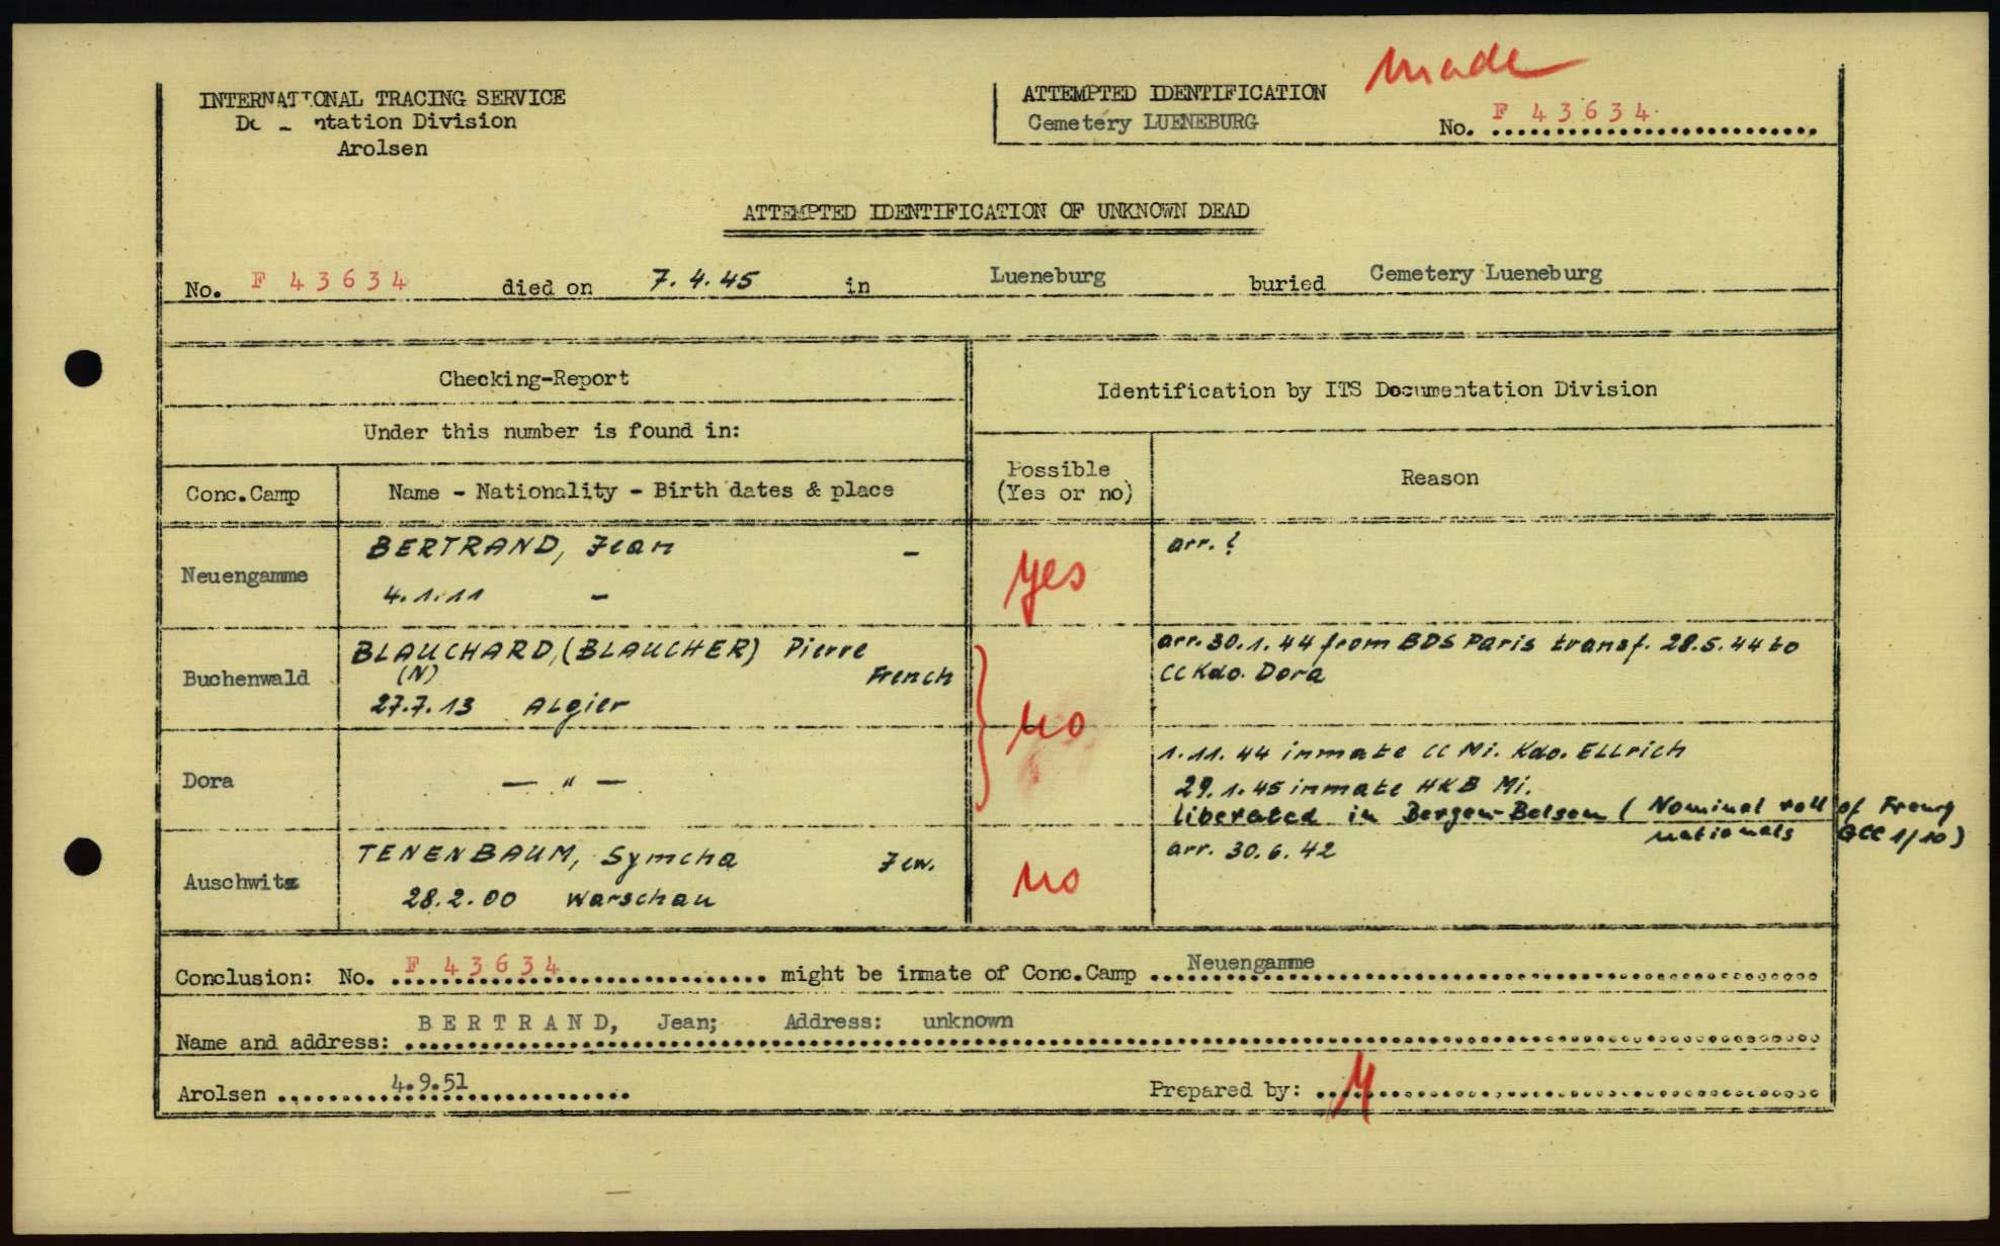 made
INTERNATIONAL TRACING SERVICE
ntation Division
Arolsen
ATTEMPTED IDENTIFICATION
Cemetery LUENEBURG
No. F 43634
ATTEMPTED IDENTIFICATION OF UNKNOWN DEAD
No. F 43634 died on 7.4.45 in Lueneburg buried Cemetery Lueneburg
Checking-Report
Identification by ITS Documentation Division
Under this number is found in:
Conc.Camp
Name - Nationality - Birth dates & place
Possible
(Yes or no)
Reason
Neuengamme
BERTRAND, Jean -
4.1.11 -
yes
arr. ?
Buchenwald
BLAUCHARD, (BLAUCHER) Pierre
(N) French
27.7.13 Algier
no
arr. 30.1.44 from BDS Paris transf. 28.5.44 to
CC Kdo. Dora
Dora
— " —
1.11.44 inmate CC Mi. Kdo. Ellrich
29.1.45 inmate HKB Mi.
liberated in Bergen-Belsen (Nominal roll of
nationals OCC 1/10)
Auschwitz
TENENBAUM, Symcha Jew.
28.2.00 Warschau
no
arr. 30.6.42
Conclusion: No. F 43634 might be inmate of Conc.Camp Neuengamme
Name and address: BERTRAND, Jean; Address: unknown
Arolsen 4.9.51
Prepared by: